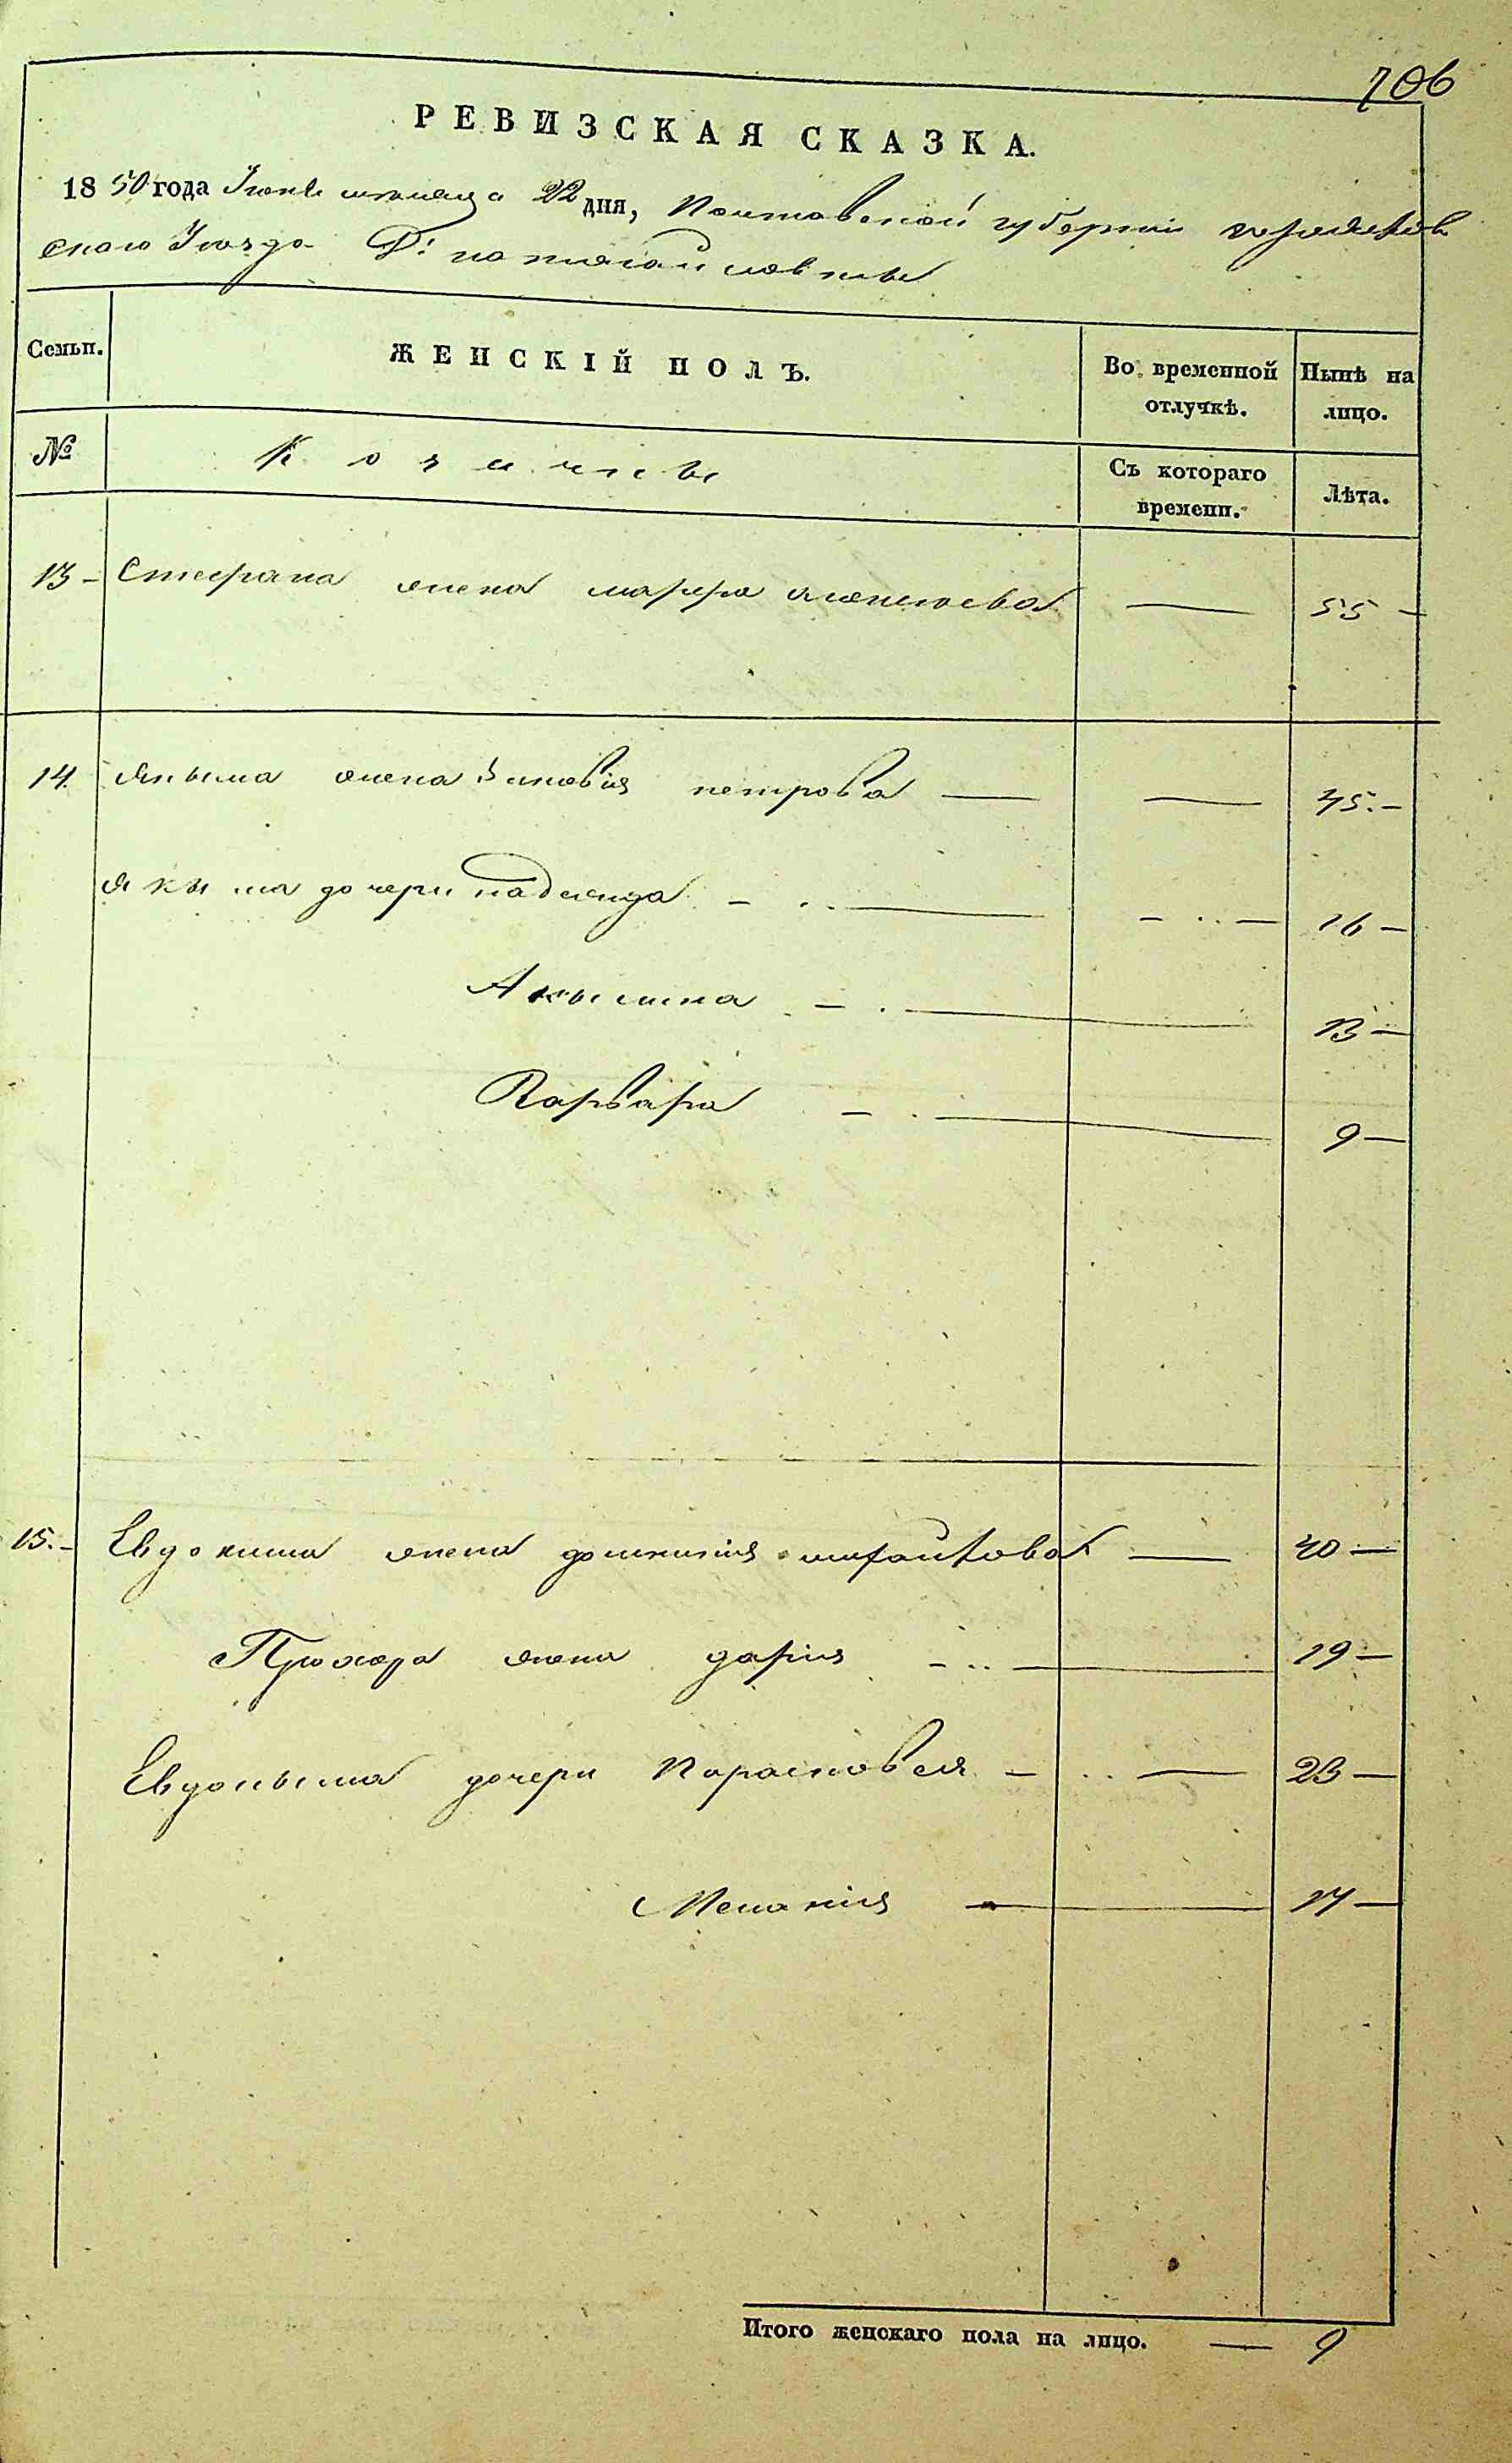 706
РЕВИЗСКАЯ СКАЗКА.
1850 года Июня месяца 22 дня, Полтавской губернии
ского Уезда Д:
Семьи. ЖЕНСКІЙ ПОЛЪ. Во временной отлучкѣ. Нынѣ на лицо.
№ Козачки Съ котораго времени. Лѣта.
13 – Стефана жена марфа алексеева — 55 –
14. Якыма жена Зиновія петрова — — 45. –
Якыма дочери надежда — 16 –
Акылина — 13 –
Варвара — 9 –
15. – Евдокима жена домникія — 40 –
Прохора жена дарія — 19 –
Евдокыма дочери Парасковея – — 23 –
Меланія — 17 –
Итого женскаго пола на лицо. — 9